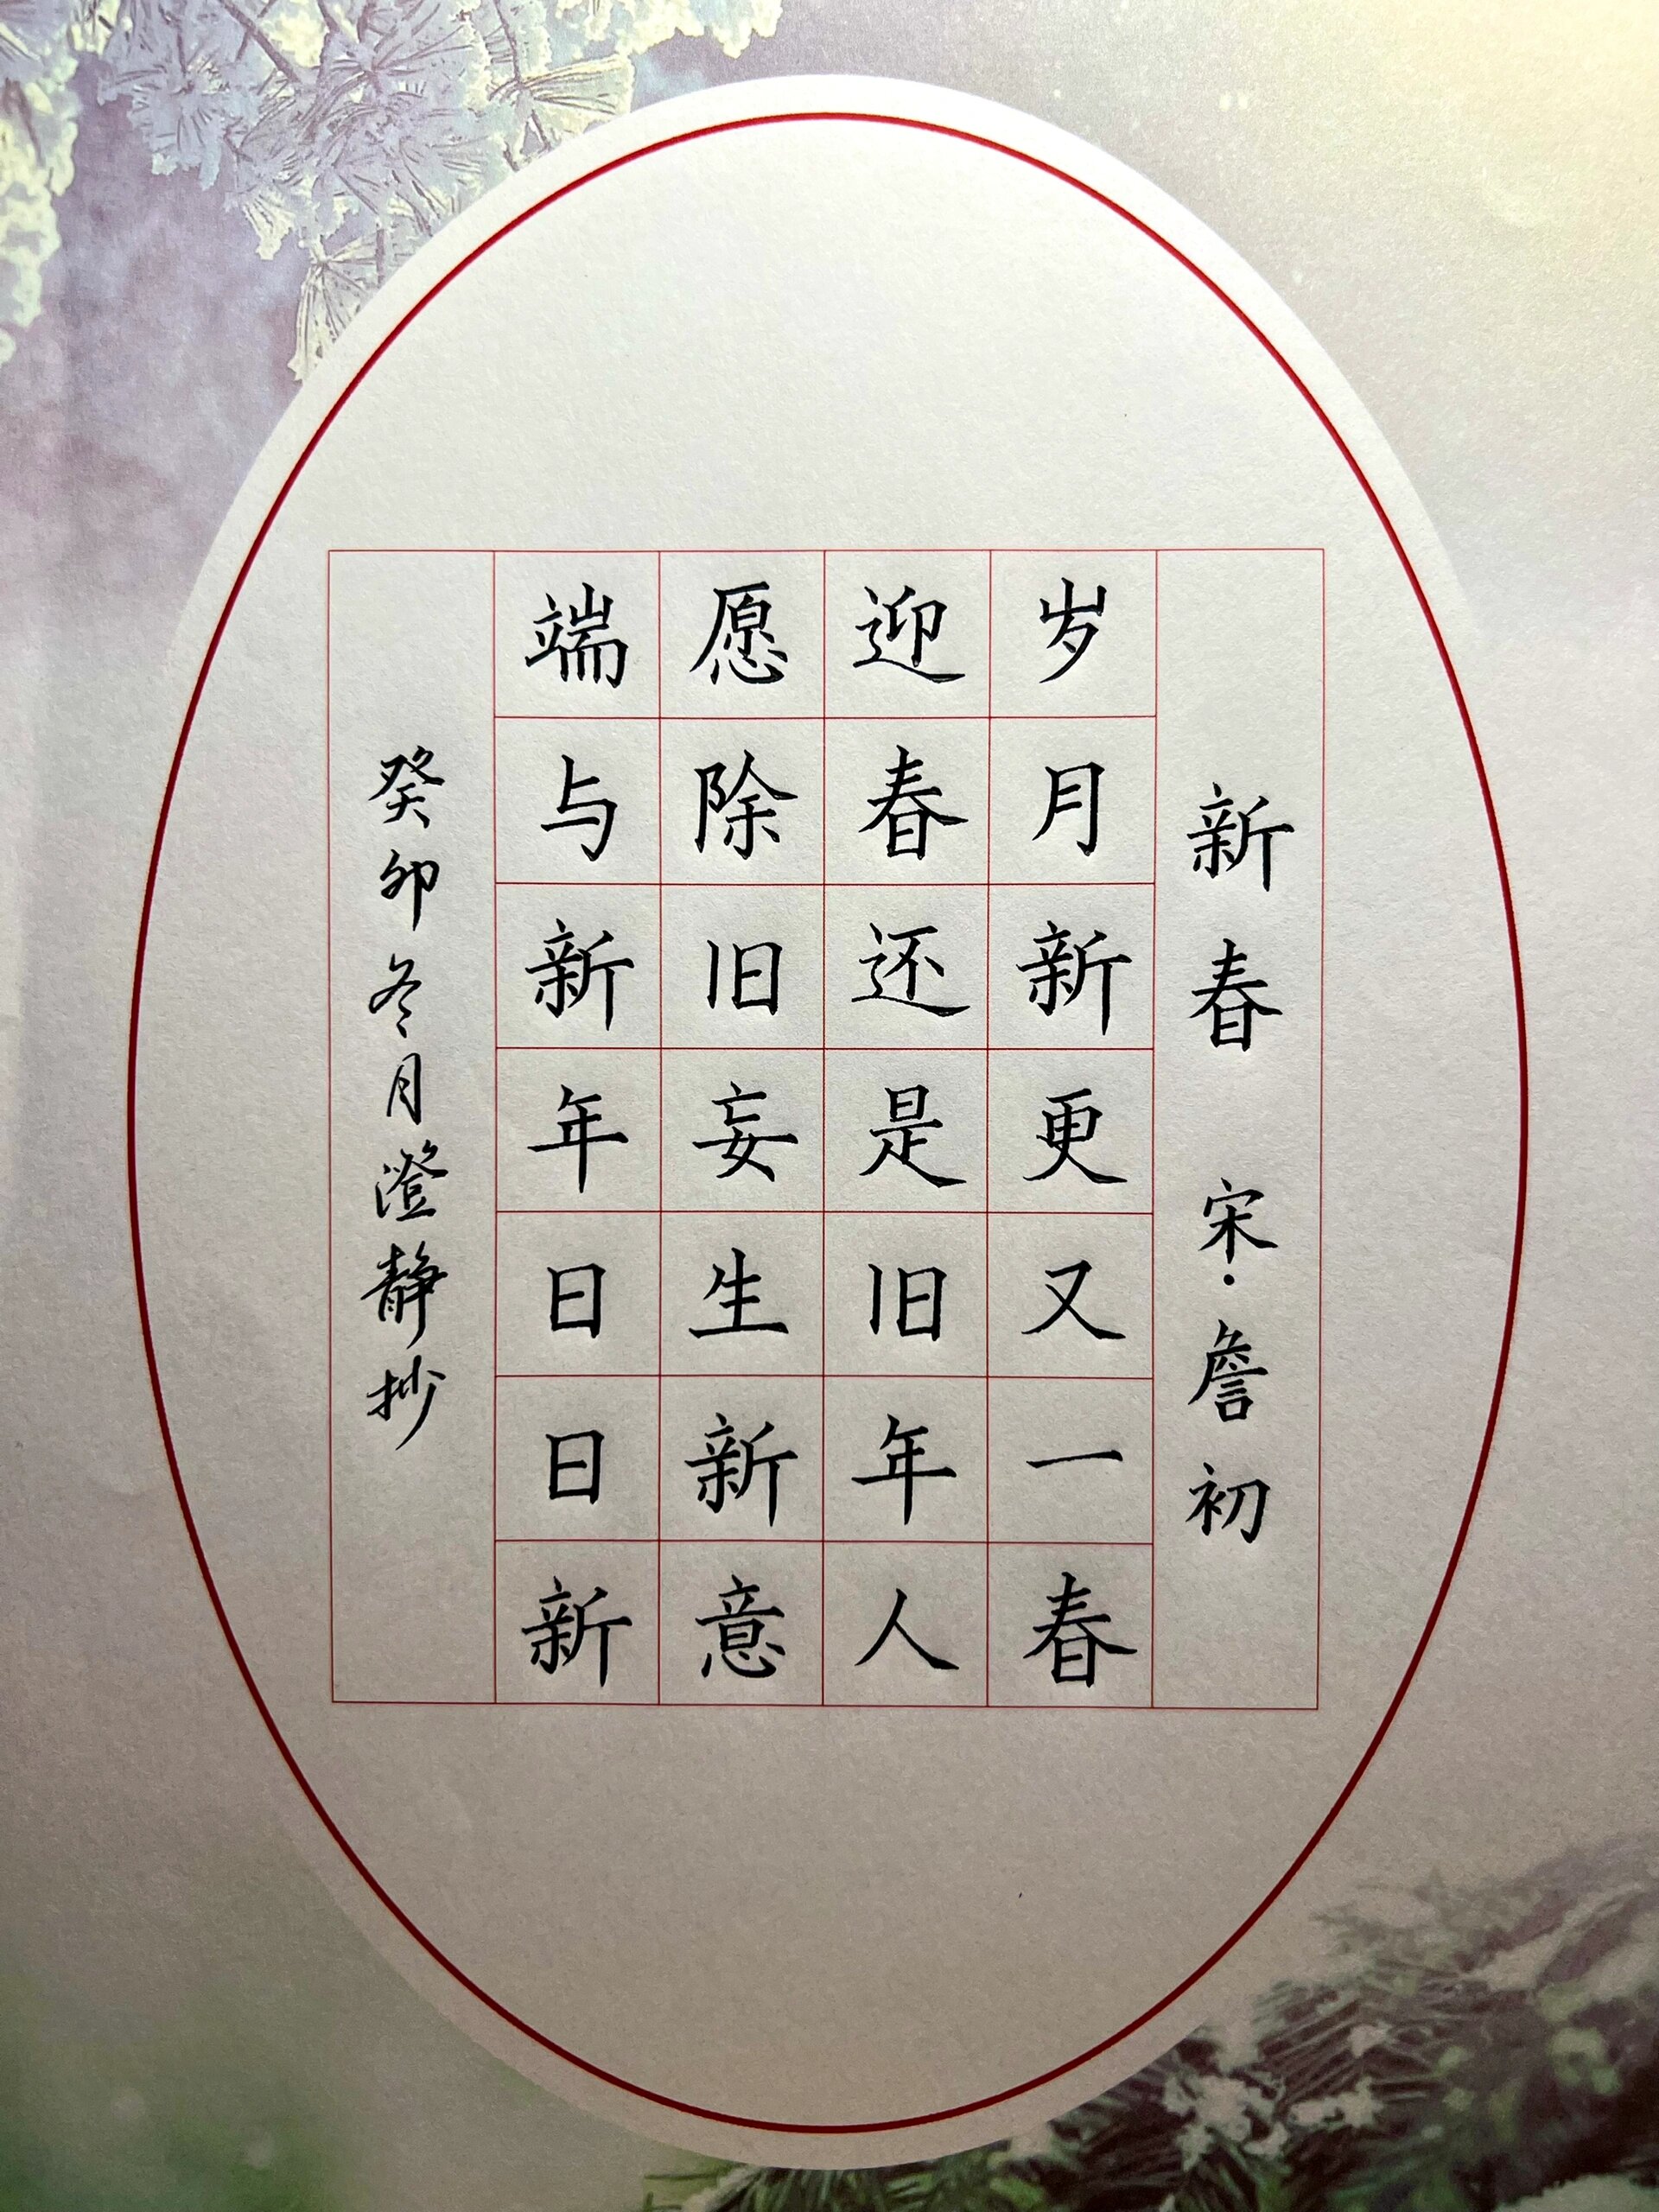 新春 宋·詹初
岁月新更又一春
迎春还是旧年人
愿除旧妄生新意
端与新年日日新
癸卯冬月澄静抄